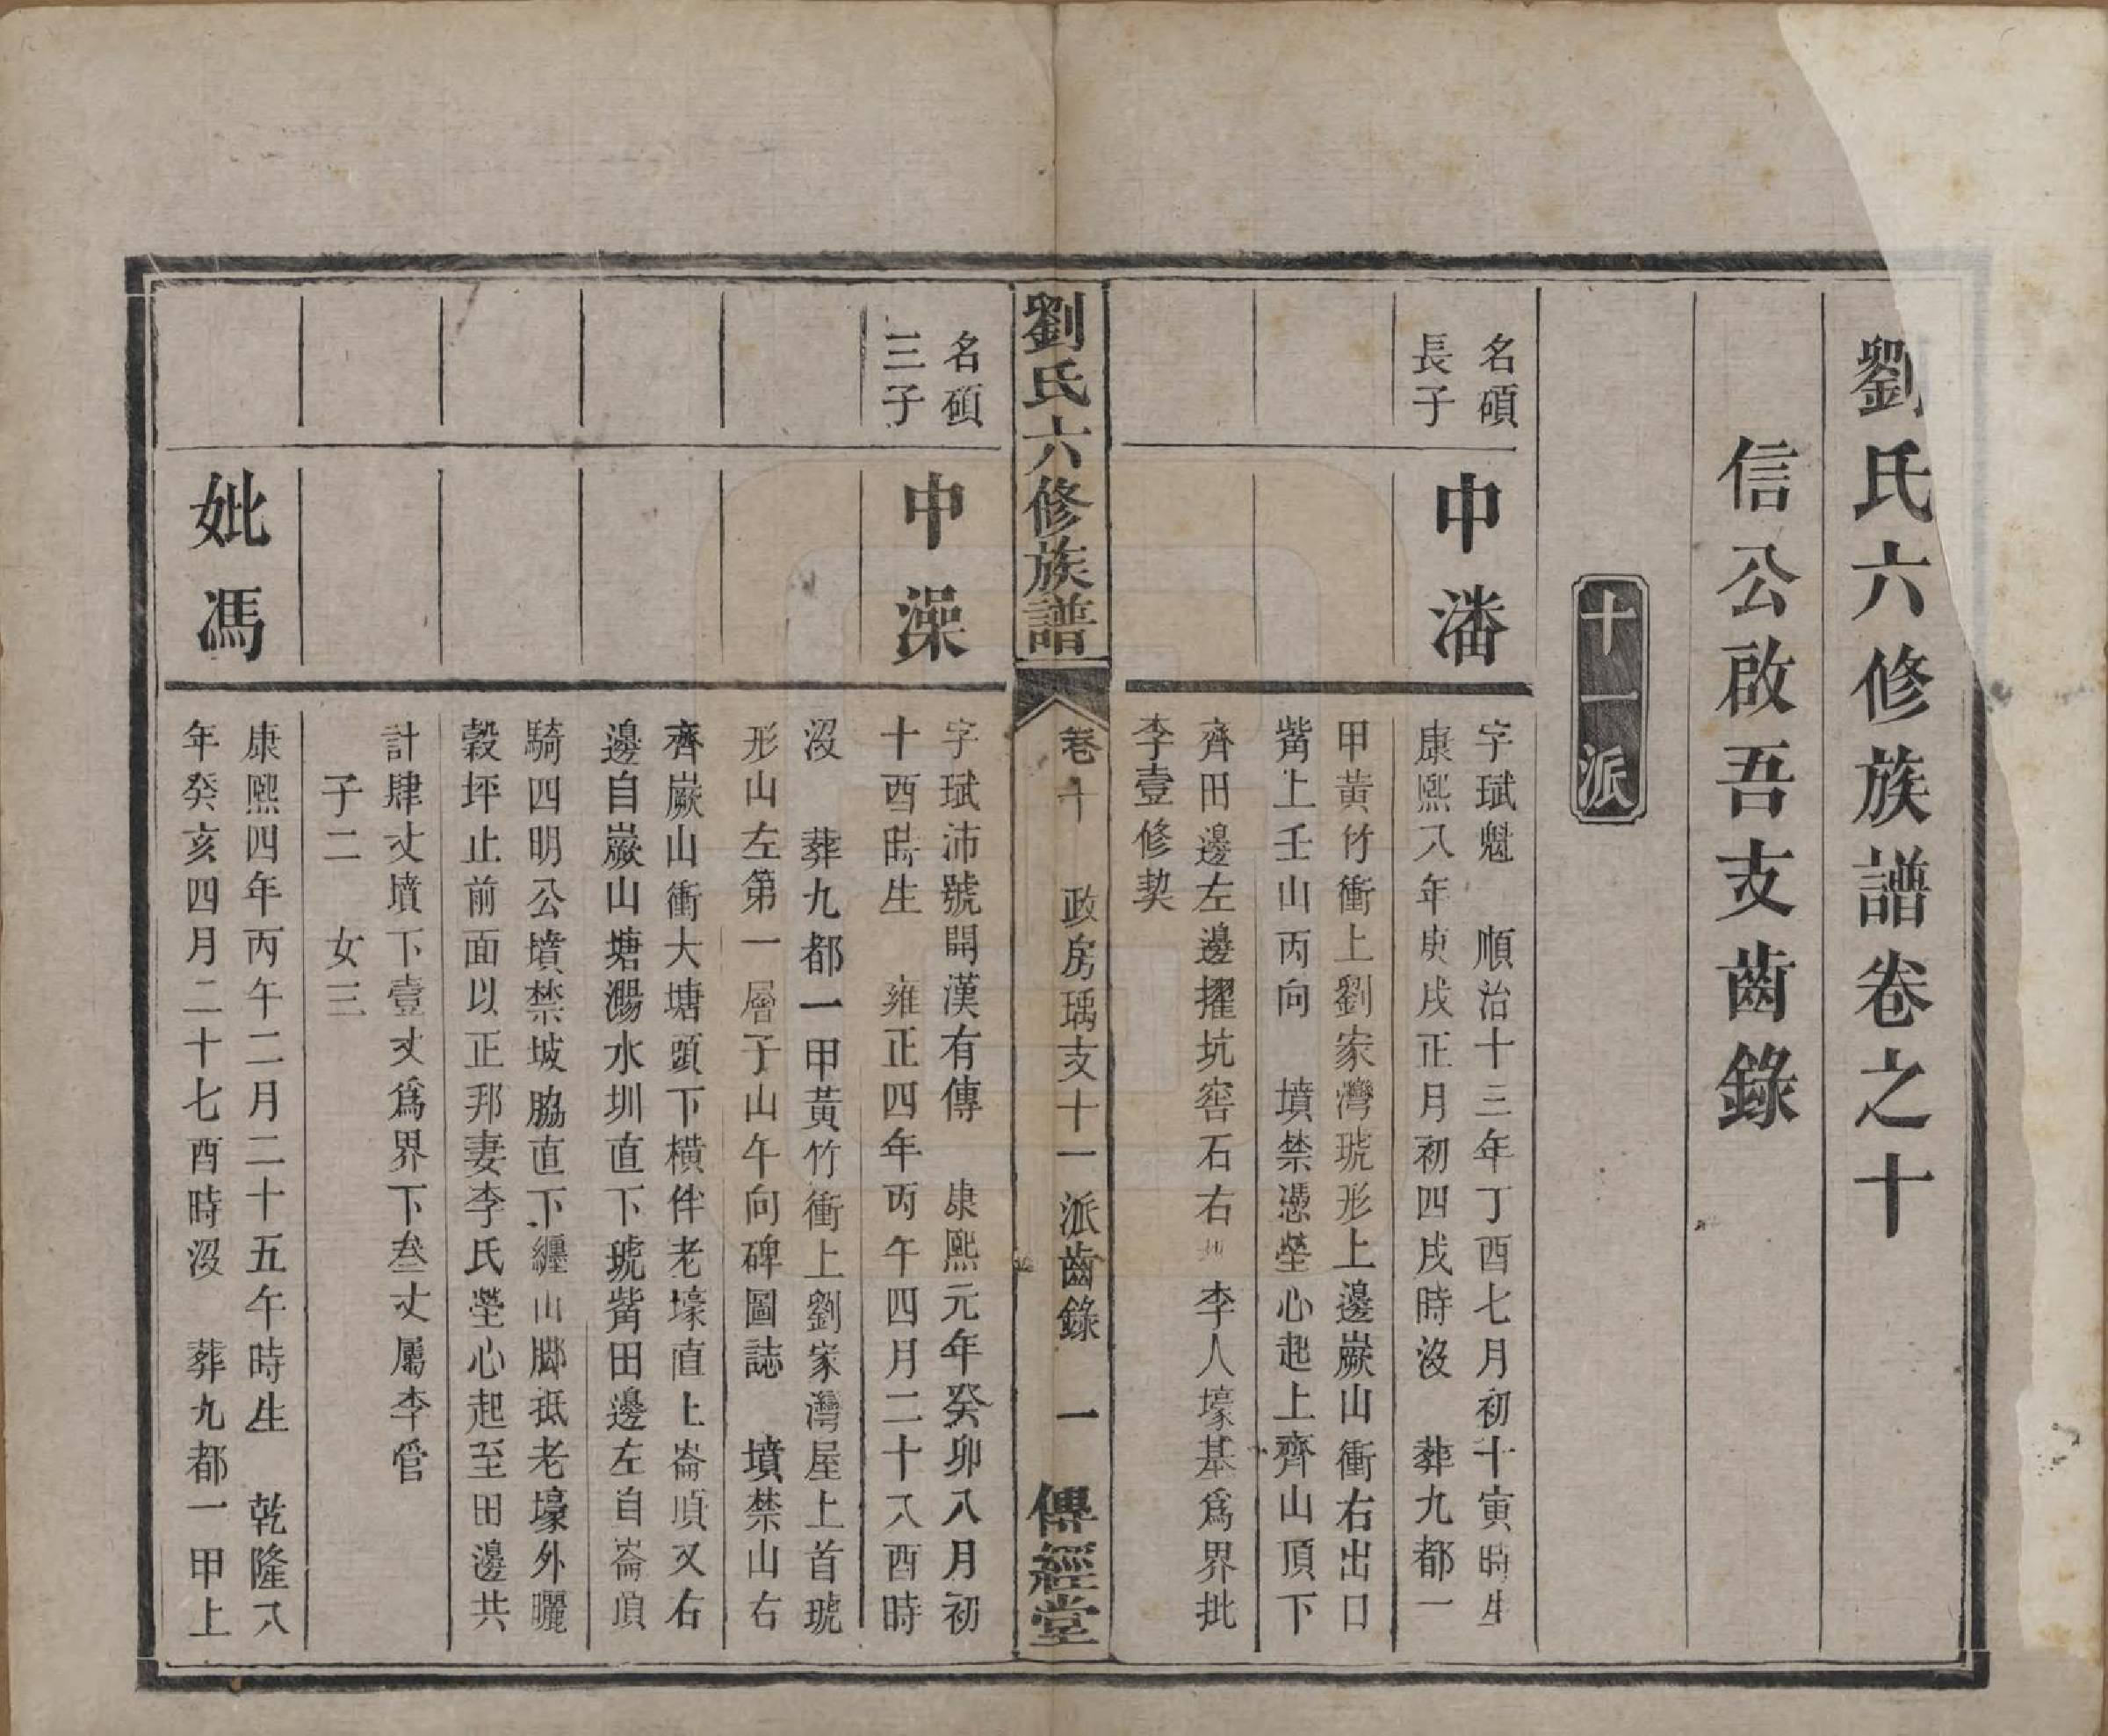 劉氏六修族譜卷之十
信公啟吾支齒錄
十一派
名碩
長子
中潘
字珷魁 順治十三年丁酉七月初十寅時生
康熙八年庚戌正月初四戌時沒 葬九都一
甲黃竹衝上劉家灣琥形上邊嶽山衝右出口
觜上壬山丙向 墳禁憑塋心起上齊山頂下
齊田邊左邊擢坑窖石右 李人壕基為界批
李壹修契
劉氏六修族譜
卷十 政房瑀支十一派齒錄 一 傳經堂
名碩
三子
中澡
字珷沛號開漢有傳 康熙元年癸卯八月初
十酉時生 雍正四年丙午四月二十八酉時
沒 葬九都一甲黃竹衝上劉家灣屋上首琥
形山左第一層子山午向碑圖誌 墳禁山右
齊嶽山衝大塘頭下橫伴老壕直上崙頂又右
邊自嶽山塘濁水圳直下琥觜田邊左自崙頂
騎四明公墳禁坡脇直下纏山腳抵老壕外曬
穀坪止前面以正邦妻李氏塋心起至田邊共
計肆丈墳下壹丈為界下叁丈屬李管
子二 女三
妣馮
康熙四年丙午二月二十五午時生 乾隆八
年癸亥四月二十七酉時沒 葬九都一甲上